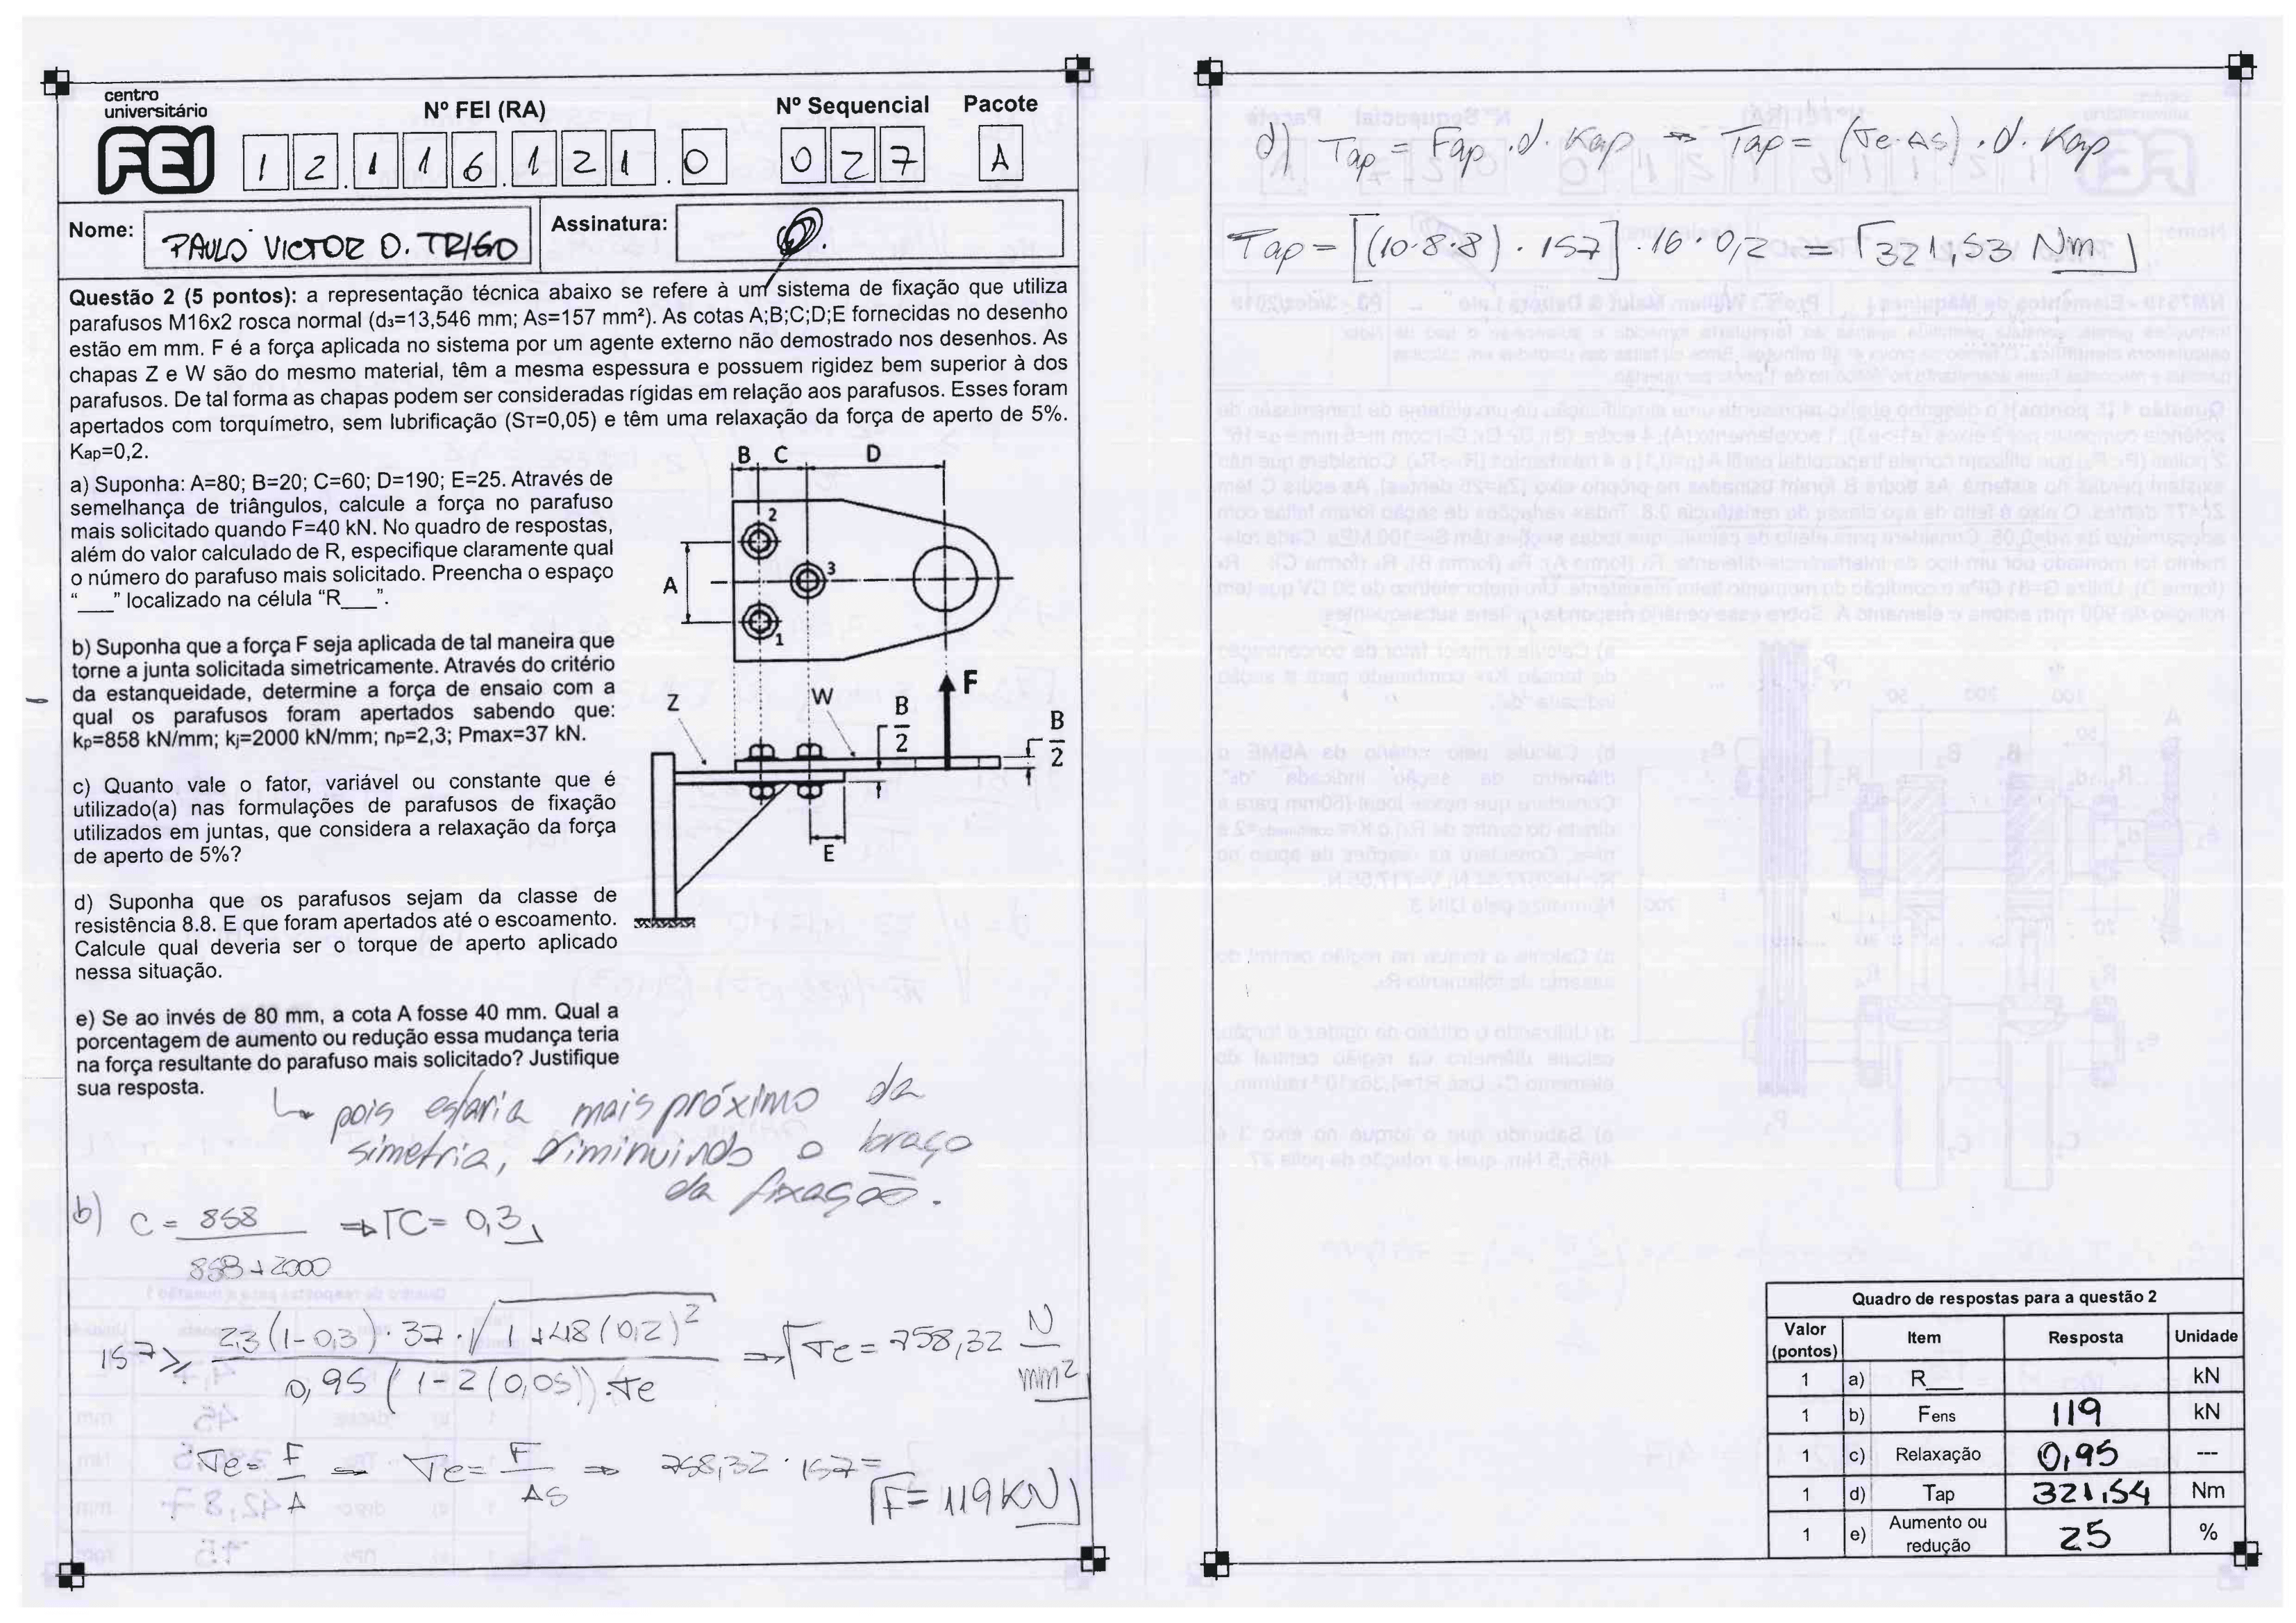 centro
universitário
FEI
Nº FEI (RA)
Nº Sequencial
Pacote
1 2 . 1 1 6 . 1 2 1 . 0
0 2 7
A
Nome:
PAULO VICTOR D. TRIGO
Assinatura:
Questão 2 (5 pontos): a representação técnica abaixo se refere à um sistema de fixação que utiliza
parafusos M16x2 rosca normal (d3=13,546 mm; As=157 mm²). As cotas A;B;C;D;E fornecidas no desenho
estão em mm. F é a força aplicada no sistema por um agente externo não demostrado nos desenhos. As
chapas Z e W são do mesmo material, têm a mesma espessura e possuem rigidez bem superior à dos
parafusos. De tal forma as chapas podem ser consideradas rígidas em relação aos parafusos. Esses foram
apertados com torquímetro, sem lubrificação (ST=0,05) e têm uma relaxação da força de aperto de 5%.
Kap=0,2.
a) Suponha: A=80; B=20; C=60; D=190; E=25. Através de
semelhança de triângulos, calcule a força no parafuso
mais solicitado quando F=40 kN. No quadro de respostas,
além do valor calculado de R, especifique claramente qual
o número do parafuso mais solicitado. Preencha o espaço
“___” localizado na célula “R___”.
b) Suponha que a força F seja aplicada de tal maneira que
torne a junta solicitada simetricamente. Através do critério
da estanqueidade, determine a força de ensaio com a
qual os parafusos foram apertados sabendo que:
kp=858 kN/mm; kj=2000 kN/mm; np=2,3; Pmax=37 kN.
c) Quanto vale o fator, variável ou constante que é
utilizado(a) nas formulações de parafusos de fixação
utilizados em juntas, que considera a relaxação da força
de aperto de 5%?
d) Suponha que os parafusos sejam da classe de
resistência 8.8. E que foram apertados até o escoamento.
Calcule qual deveria ser o torque de aperto aplicado
nessa situação.
e) Se ao invés de 80 mm, a cota A fosse 40 mm. Qual a
porcentagem de aumento ou redução essa mudança teria
na força resultante do parafuso mais solicitado? Justifique
sua resposta.
B C D
2
3
1
A
F
Z
W
B
2
B
2
E
↳ pois estaria mais próximo da
simetria, diminuindo o braço
da fixação.
b) C = 858 / 858+2000 ⇒ C= 0,3
157 ≥ 2,3(1-0,3)·37·√1+48(0,2)² / 0,95(1-2(0,05))·σe ⇒ σe = 758,32 N/mm²
σe= F/A → σe= F/AS ⇒ 758,32 · 157=
F= 119KN
d) Tap = Fap · d · Kap → Tap = (σe·AS) · d · Kap
Tap = [(10·8·8) · 157] · 16 · 0,2 = 321,53 Nm
Quadro de respostas para a questão 2
Valor (pontos) Item Resposta Unidade
1 a) R___ kN
1 b) Fens 119 kN
1 c) Relaxação 0,95 ---
1 d) Tap 321,54 Nm
1 e) Aumento ou redução 25 %